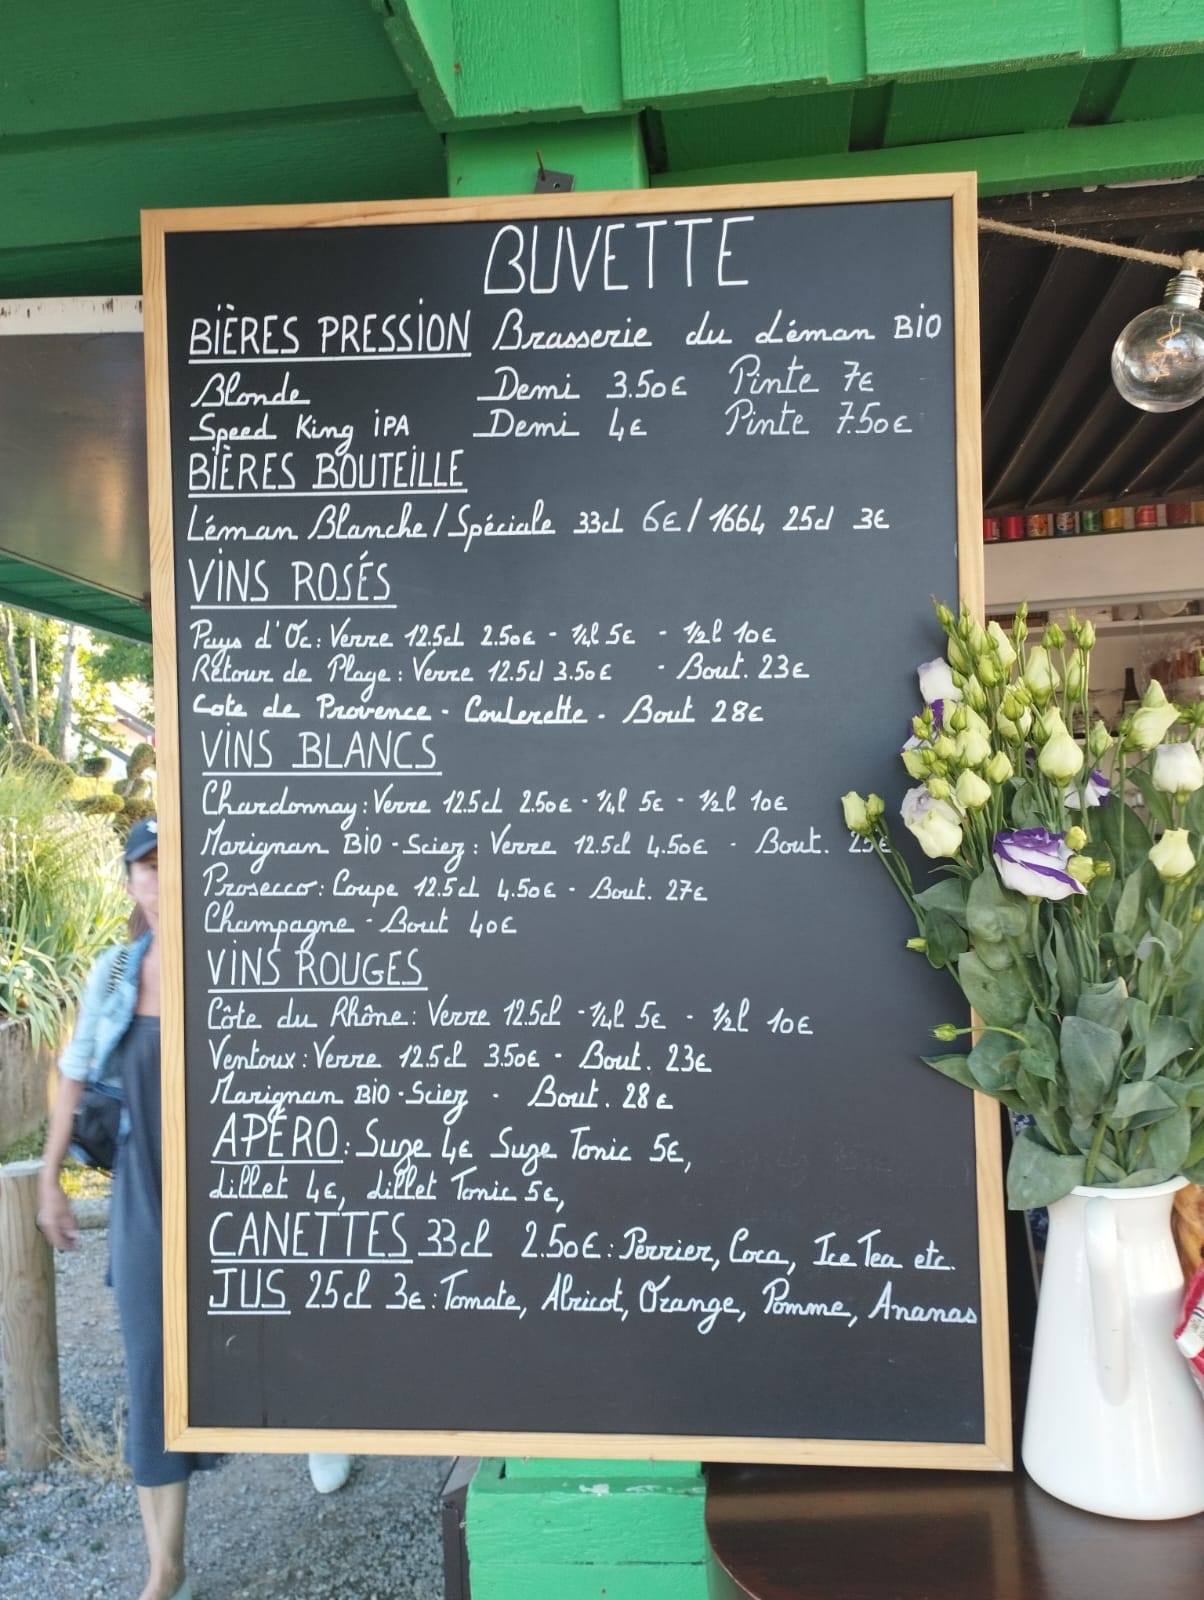 BUVETTE
BIÈRES PRESSION Brasserie du Léman BIO
Blonde Demi 3.50€ Pinte 7€
Speed King IPA Demi 4€ Pinte 7.50€
BIÈRES BOUTEILLE
Léman Blanche/Spéciale 33cl 6€/1664 25cl 3€
VINS ROSÉS
Pays d'Oc: Verre 12.5cl 2.50€ - 1/4l 5€ - 1/2l 10€
Retour de Plage: Verre 12.5cl 3.50€ - Bout. 23€
Cote de Provence - Coulerette - Bout 28€
VINS BLANCS
Chardonnay: Verre 12.5cl 2.50€ - 1/4l 5€ - 1/2l 10€
Marignan BIO - Sciez: Verre 12.5cl 4.50€ - Bout.
Prosecco: Coupe 12.5cl 4.50€ - Bout. 27€
Champagne - Bout 40€
VINS ROUGES
Côte du Rhône: Verre 12.5cl - 1/4l 5€ - 1/2l 10€
Ventoux: Verre 12.5cl 3.50€ - Bout. 23€
Marignan BIO - Sciez - Bout. 28€
APÉRO: Suze 4€ Suze Tonic 5€,
Lillet 4€, Lillet Tonic 5€,
CANETTES 33cl 2.50€: Perrier, Coca, Ice Tea etc.
JUS 25cl 3€: Tomate, Abricot, Orange, Pomme, Ananas